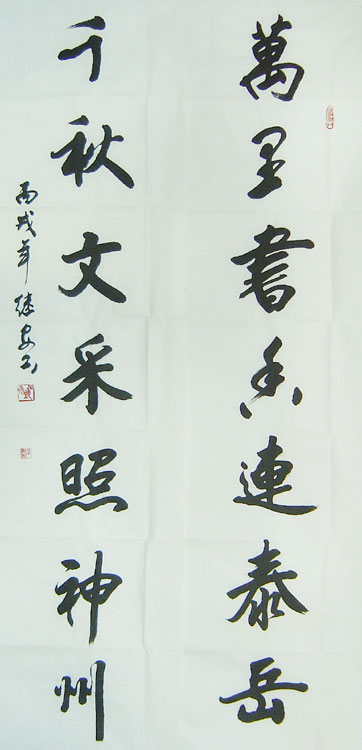 萬里書香連泰岳
千秋文采照神州
丙戌年